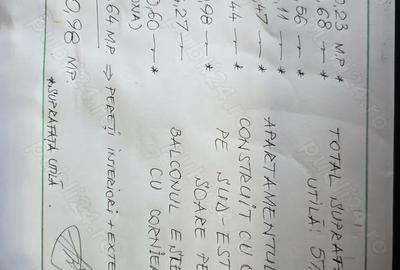 0,23 M.P. *
,68 — *
,56 — *
,11 — *
,47 — *
,44 — *
,98 — *
,27 —
0,60 — *
ONA)
,64 M.P. ⇒ PEREȚI INTERIORI + EXTE
0,98 MP.
*SUPRAFAȚA UTILĂ.
TOTAL SUPRAFA
UTILĂ: 57
APARTAMENTUL
CONSTRUIT CU C
PE SUD-EST
SOARE PE
BALCONUL ESTE
CU CORNIE
publi24.ro